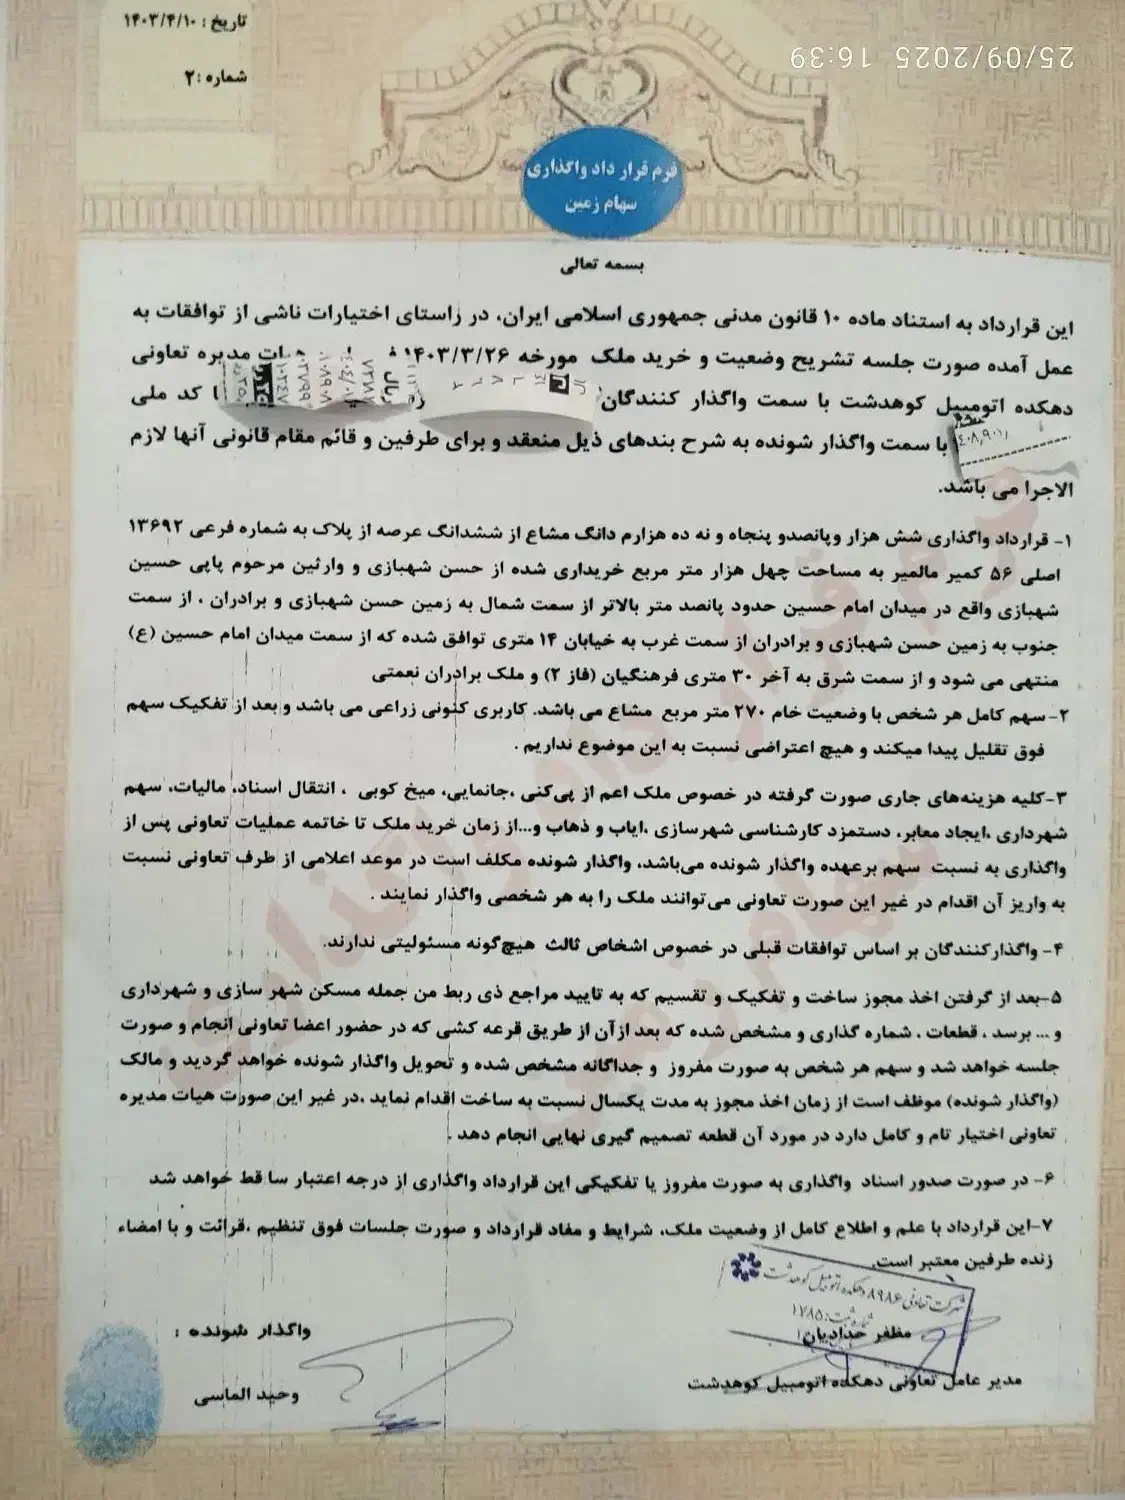 تاریخ : ۱۴۰۳/۴/۱۰
شماره :۲
25/09/2025 16:39
فرم قرار داد واگذاری
سهام زمین
بسمه تعالی
این قرارداد به استناد ماده ۱۰ قانون مدنی جمهوری اسلامی ایران، در راستای اختیارات ناشی از توافقات به
عمل آمده صورت جلسه تشریح وضعیت و خرید ملک مورخه ۱۴۰۳/۳/۲۶ هیات مدیره تعاونی
دهکده اتومبیل کوهدشت با سمت واگذار کنندگان با کد ملی
با سمت واگذار شونده به شرح بندهای ذیل منعقد و برای طرفین و قائم مقام قانونی آنها لازم
الاجرا می باشد.
۱- قرارداد واگذاری شش هزار وپانصدو پنجاه و نه ده هزارم دانگ مشاع از ششدانگ عرصه از پلاک به شماره فرعی ۱۳۶۹۲
اصلی ۵۶ کمیر مالمیر به مساحت چهل هزار متر مربع خریداری شده از حسن شهبازی و وارثین مرحوم پاپی حسین
شهبازی واقع در میدان امام حسین حدود پانصد متر بالاتر از سمت شمال به زمین حسن شهبازی و برادران ، از سمت
جنوب به زمین حسن شهبازی و برادران از سمت غرب به خیابان ۱۴ متری توافق شده که از سمت میدان امام حسین (ع)
منتهی می شود و از سمت شرق به آخر ۳۰ متری فرهنگیان (فاز ۲) و ملک برادران نعمتی
۲- سهم کامل هر شخص با وضعیت خام ۲۷۰ متر مربع مشاع می باشد. کاربری کنونی زراعی می باشد و بعد از تفکیک سهم
فوق تقلیل پیدا میکند و هیچ اعتراضی نسبت به این موضوع نداریم .
۳-کلیه هزینه‌های جاری صورت گرفته در خصوص ملک اعم از پی‌کنی ،جانمایی، میخ کوبی ، انتقال اسناد، مالیات، سهم
شهرداری ،ایجاد معابر، دستمزد کارشناسی شهرسازی ،ایاب و ذهاب و...از زمان خرید ملک تا خاتمه عملیات تعاونی پس از
واگذاری به نسبت سهم برعهده واگذار شونده می‌باشد، واگذار شونده مکلف است در موعد اعلامی از طرف تعاونی نسبت
به واریز آن اقدام در غیر این صورت تعاونی می‌توانند ملک را به هر شخصی واگذار نمایند .
۴- واگذارکنندگان بر اساس توافقات قبلی در خصوص اشخاص ثالث هیچ‌گونه مسئولیتی ندارند.
۵-بعد از گرفتن اخذ مجوز ساخت و تفکیک و تقسیم که به تایید مراجع ذی ربط من جمله مسکن شهر سازی و شهرداری
و ... برسد ، قطعات ، شماره گذاری و مشخص شده که بعد ازآن از طریق قرعه کشی که در حضور اعضا تعاونی انجام و صورت
جلسه خواهد شد و سهم هر شخص به صورت مفروز و جداگانه مشخص شده و تحویل واگذار شونده خواهد گردید و مالک
(واگذار شونده) موظف است از زمان اخذ مجوز به مدت یکسال نسبت به ساخت اقدام نماید ،در غیر این صورت هیات مدیره
تعاونی اختیار تام و کامل دارد در مورد آن قطعه تصمیم گیری نهایی انجام دهد .
۶- در صورت صدور اسناد واگذاری به صورت مفروز یا تفکیکی این قرارداد واگذاری از درجه اعتبار ساقط خواهد شد
۷-این قرارداد با علم و اطلاع کامل از وضعیت ملک، شرایط و مفاد قرارداد و صورت جلسات فوق تنظیم ،قرائت و با امضاء
زنده طرفین معتبر است.
شرکت تعاونی ۸۹۸۶ دهکده اتومبیل کوهدشت
شماره ثبت: ۱۷۸۵
مظفر حدادیان
مدیر عامل تعاونی دهکده اتومبیل کوهدشت
واگذار شونده :
وحید الماسی